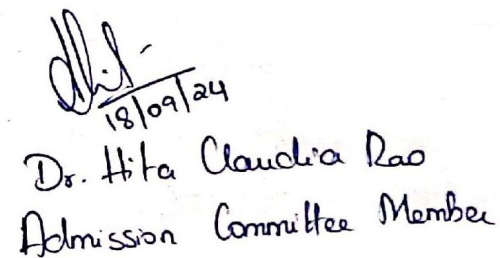 18/09/24
Dr. Hita Claudia Rao
Admission Committee Member